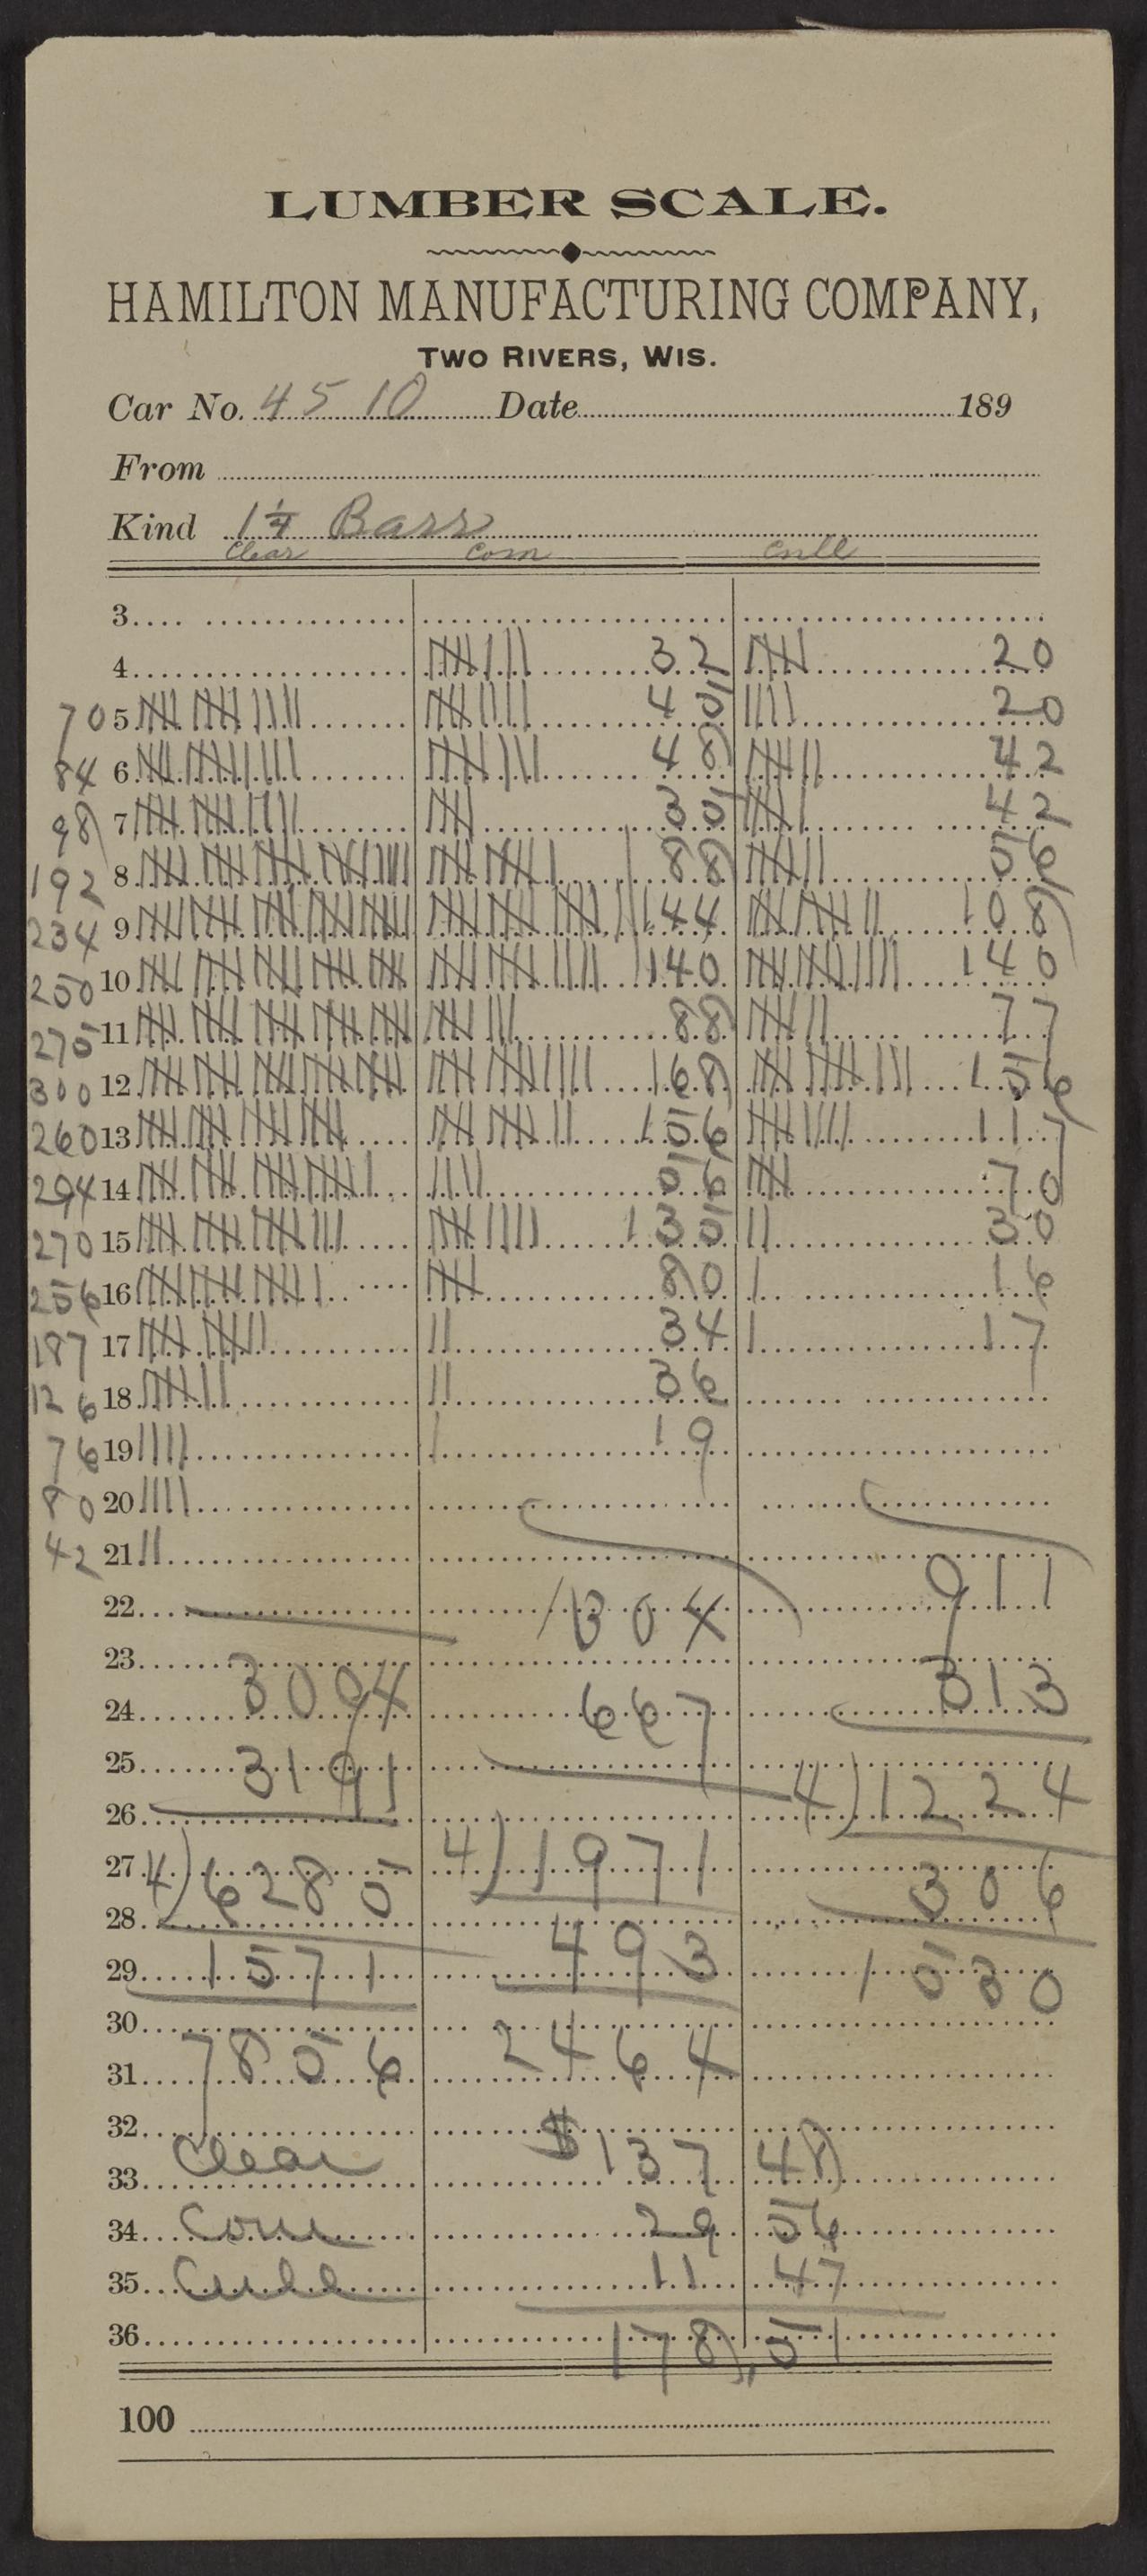 LUMBER SCALE.
HAMILTON MANUFACTURING COMPANY,
TWO RIVERS, WIS.
Car No. 4510 Date 189
From
Kind 1 1/4 Bass
Clear Com Cull
3
4 32 20
70 5 40 20
84 6 48 42
98 7 35 42
192 8 88 56
234 9 144 108
250 10 140 140
275 11 88 77
300 12 168 156
260 13 156 117
294 14 56 70
270 15 135 30
256 16 80 16
187 17 34 17
126 18 36
76 19 19
80 20
42 21
22 1304 911
23
24 3094 667 313
25 3191
26 4)1224
27 4)6285 4)1971
28 306
29 1571 493 1530
30
31 7856 2464
32
33 Clear $137 48
34 Com 29 56
35 Cull 11 47
36 178,51
100